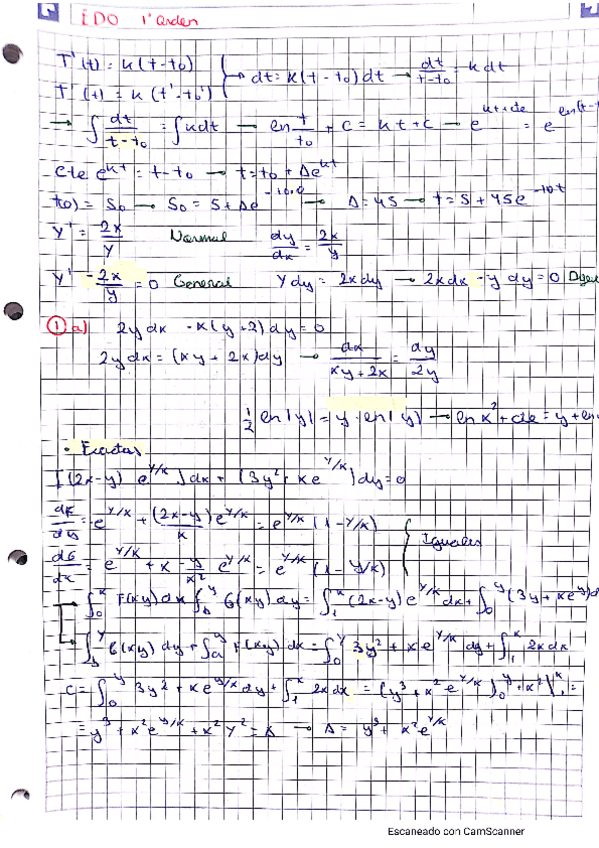 IDO 1º orden
T'(t) = k(t-t₀)
T'(t) = k(t'-t₀') } → dt = k(t-t₀)dt → dt/(t-t₀) = kdt
→ ∫ dt/(t-t₀) = ∫ kdt → en t/t₀ + C = kt+C → e^(kt+cte) = e^(en(t-t
Cte e^(kt) = t-t₀ → t = t₀ + Δe^(kt)
t(0) = 50 → 50 = 5 + Δe^(-10·0) → Δ = 45 → t = 5 + 45e^(-10t)
y' = 2x/y Normal dy/dx = 2x/y
y' - 2x/y = 0 General ydy = 2xdy → 2xdx - ydy = 0
① a) 2ydx - x(y+2)dy = 0
2ydx = (xy + 2x)dy → dx/(xy+2x) = dy/2y
½ en|y| = y · en|y| → en x² + cte = y + en
• Exactas
[(2x-y) e^(y/x)] dx + (3y² + xe^(y/x)) dy = 0
= e^(y/x) + (2x-y)e^(y/x)/x = e^(y/x) (1-y/x)
dG/dx = e^(y/x) + x - y/x² e^(y/x) = e^(y/x) (1-y/x) } Iguales
∫₀ˣ F(xy)dx ∫_b^y G(xy)dy = ∫₁ˣ (2x-y)e^(y/x) dx + ∫₀^y (3y + xe^(y/x))d
∫_b^y G(xy)dy + ∫_a^y F(xy)dx = ∫₀^y 3y² + xe^(y/x) dy + ∫₁ˣ 2xdx
C = ∫₀^y 3y² + xe^(y/x) dy + ∫₁ˣ 2xdx = (y³ + x²e^(y/x))₀^y + x²)₁ˣ =
= y³ + x²e^(y/x) + x² y² = Δ → Δ = y³ + x²e^(y/x)
Escaneado con CamScanner